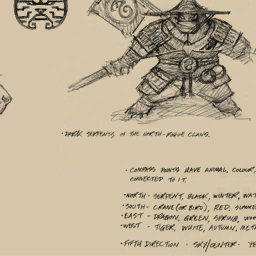 · DARK SERPENTS OF THE NORTH - ROGUE CLANS.
· COMPASS POINTS HAVE ANIMAL, COLOUR,
CONNECTED TO IT.
· NORTH - SERPENT, BLACK, WINTER, WAT
· SOUTH - CRANE (OR BIRD), RED, SUMME
· EAST - DRAGON, GREEN, SPRING, WOO
· WEST - TIGER, WHITE, AUTUMN, META
· FIFTH DIRECTION - SKY/CENTER - YE